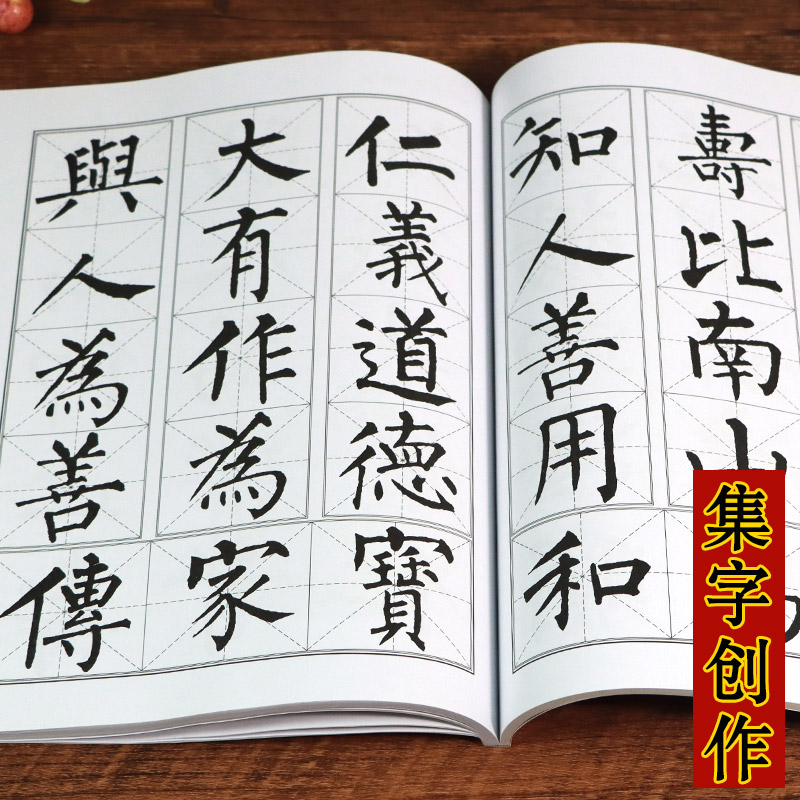 仁義道德
大有作為
與人為善
傳家寶
壽比南山
知人善用
和
集字创作